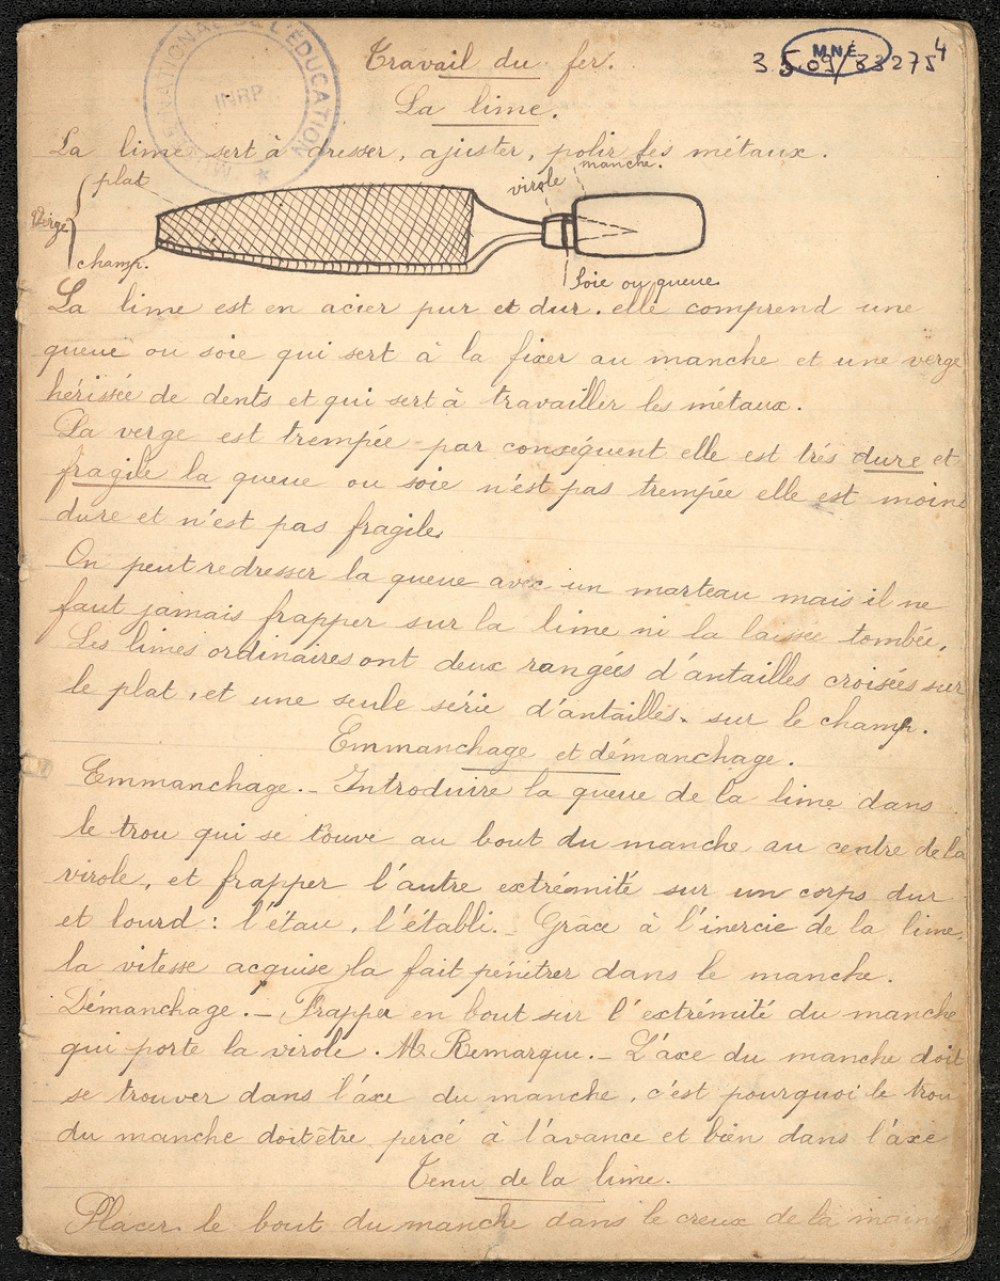 Travail du fer.
MNÉ
3 5 09/83275 4
NATIONAL DE L'ÉDUCATION
INRP
La lime.
La lime sert à dresser, ajuster, polir les métaux.
plat
virole
manche.
Verge
champ.
Soie ou queue
La lime est en acier pur et dur. elle comprend une
queue ou soie qui sert à la fixer au manche et une verge
hérissée de dents et qui sert à travailler les métaux.
La verge est trempée par conséquent elle est très dure et
fragile la queue ou soie n'est pas trempée elle est moins
dure et n'est pas fragile
On peut redresser la queue avec un marteau mais il ne
faut jamais frapper sur la lime ni la laissee tombée.
Les limes ordinaires ont deux rangées d'antailles croisées sur
le plat, et une seule série d'antailles. sur le champ.
Emmanchage et démanchage.
Emmanchage. - Introduire la queue de la lime dans
le trou qui se touve au bout du manche au centre de la
virole, et frapper l'autre extrémité sur un corps dur
et lourd : l'étau, l'établi. - Grâce à l'inercie de la lime,
la vitesse acquise la fait pénétrer dans le manche.
Démanchage. - Frapper en bout sur l'extrémité du manche
qui porte la virole. Remarque. - L'axe du manche doit
se trouver dans l'axe du manche, c'est pourquoi le trou
du manche doit être percé à l'avance et bien dans l'axe
Tenu de la lime.
Placer le bout du manche dans le creux de la main